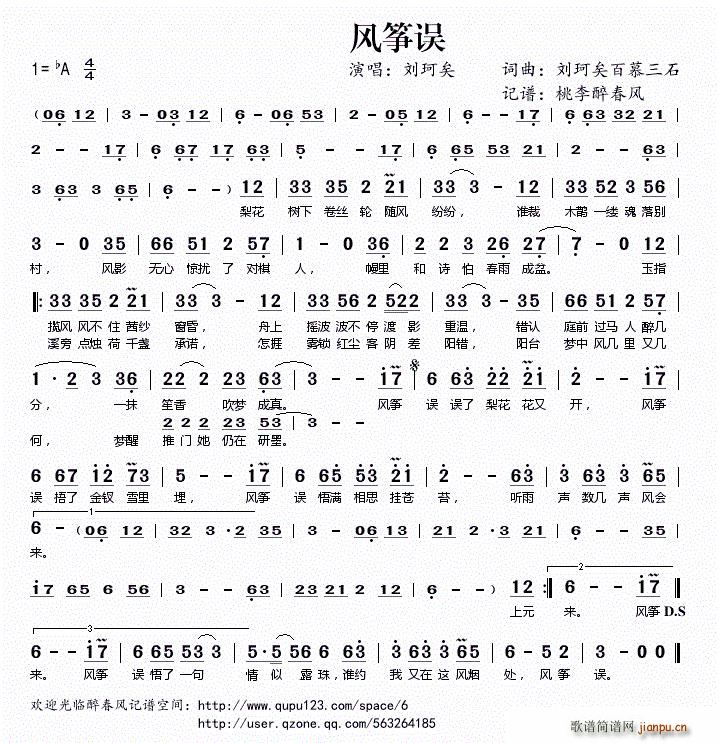 风筝误
1=♭A 4/4 演唱：刘珂矣 词曲：刘珂矣百慕三石
记谱：桃李醉春风
(06 12 | 3 - 03 12 | 6 - 06 53 | 6 - - 17 | 6 63 32 21 |
2 - - 17 | 6 67 17 63 | 5 - - 17 | 6 65 53 21 | 2 - - 51 |
3 63 3 65 | 6 - - ) 12 | 33 35 2 21 | 33 3 - 33 | 33 52 3 56 |
梨花 树下 卷丝 轮 随风 纷纷， 谁裁 木鹊 一缕 魂 落别
3 - 0 35 | 66 51 2 57 | 2 - 0 36 | 2 2 3 26 27 | 7 - 0 12 |
村， 风影 无心 惊扰 了 对棋 人， 幔里 和 诗 怕 春雨 成盆。 玉指
33 35 2 21 | 33 3 - 12 | 33 56 2 522 | 33 3 - 63 | 33 52 3 57 |
揽风 风不 住 茜纱 窗昏， 舟上 摇波 波不 停 渡 影 重温， 错认 庭前 过马 人 醉几
溪旁 点烛 荷 千盏 承诺， 怎捱 雾锁 红尘 客 阴 差 阳错， 阳台 梦中 风几 里 又几
1 · 2 3 36 | 22 2 23 63 | 3 - - 17 | 6 63 22 21 | 2 - - 17 |
分， 一抹 笙香 吹梦 成真。 风筝 误 误了 梨花 花又 开， 风筝
2 2 2 23 53 | 3 - -
何， 梦醒 推门 她 仍在 研墨。
6 67 12 73 | 5 - - 17 | 6 65 53 21 | 2 - - 63 | 5 63 3 65 |
误 悟了 金钗 雪里 埋， 风筝 误 悟满 相思 挂苍 苔， 听雨 声 数几 声 风会
1
6 - (06 12 | 32 3 3 · 2 35 | 3 - 06 13 | 21 2 2 · 3 21 | 6 - - 35 |
来。
17 65 6 56 | 3 - - 63 | 23 21 2 12 | 6 - - ) 12 :|| 6 - - 17 ||
上元 来。 风筝 D.S
2
3
6 - - 17 | 6 65 53 3 | 5 · 5 56 12 | 3 63 3 63 | 6 - 6 63 | 5 - - - ||
来。 风筝 误 悟了 一句 情 似 露珠，谁约 我 又在 这 风烟 处，风 筝 误。
欢迎光临醉春风记谱空间：http://www.qupu123.com/space/6
http://user.qzone.qq.com/563264185
歌谱简谱网
jianpu.cn